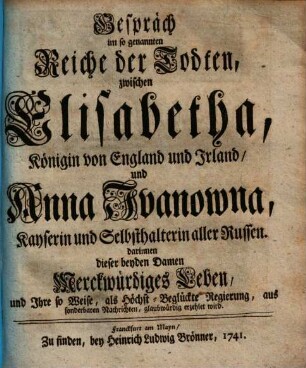 Gespräch
im so genannten
Reiche der Todten,
zwischen
Elisabetha,
Königin von England und Irland/
und
Anna Ivanowna,
Kayserin und Selbsthalterin aller Russen.
darinnen
dieser beyden Damen
Merckwürdiges Leben,
und Ihre so Weise, als Höchst-Beglückte Regierung, aus
sonderbaren Nachrichten, glaubwürdig erzehlet wird.
Franckfurt am Mayn/
Zu finden, bey Heinrich Ludwig Brönner, 1741.